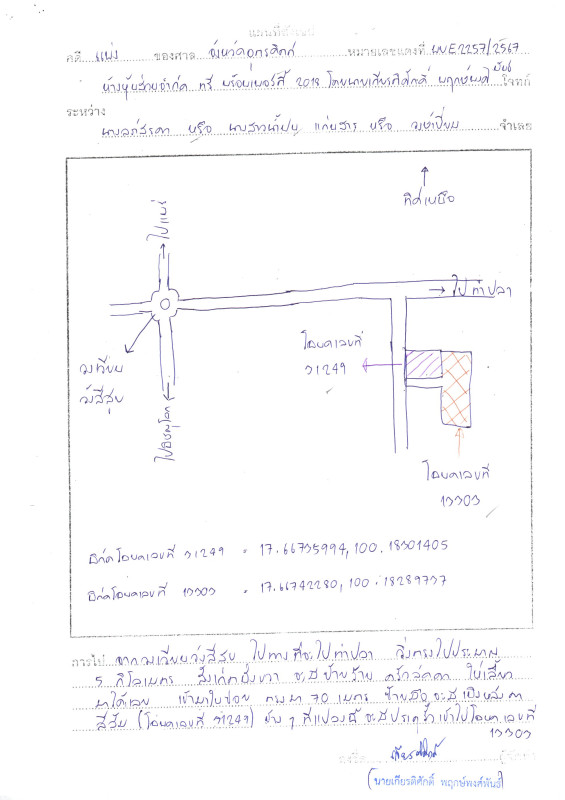 แผนที่สังเขป
คดี แพ่ง ของศาล จังหวัดอุตรดิตถ์ หมายเลขแดงที่ ผบE2257/2567
ห้างหุ้นส่วนจำกัด ทรี พร้อมเพอร์ตี้ 2018 โดยนายเกียรติศักดิ์ พฤกษ์พงศ์พันธ์ โจทก์
ระหว่าง
หรือ นางสาวน้ำฝน แก่นสาร หรือ จำเลย
ทิศเหนือ
ไปแพร่
→ ไปท่าปลา
โฉนดเลขที่
31249
วงเวียน
วังสีสูบ
ไปพิษณุโลก
โฉนดเลขที่
13303
พิกัดโฉนดเลขที่ 31249 = 17.66735994, 100.18301405
พิกัดโฉนดเลขที่ 13303 = 17.66742280, 100.18289737
การไป จากวงเวียนวังสีสูบ ไปทางที่จะไปท่าปลา วิ่งตรงไปประมาณ
5 กิโลเมตร สังเกตฝั่งขวา จะมีป้ายร้าน ครัวลัดดา ให้เลี้ยว
มาได้เลย เข้ามาในซอย ตรงมา 70 เมตร ซ้ายมือ จะมีเป็นหลังคา
สีส้ม (โฉนดเลขที่ 31249) ข้าง ๆ ที่แปลงนี้ จะมีประตูรั้วเข้าไปโฉนดเลขที่
13303
ลงชื่อ
(นายเกียรติศักดิ์ พฤกษ์พงศ์พันธ์)